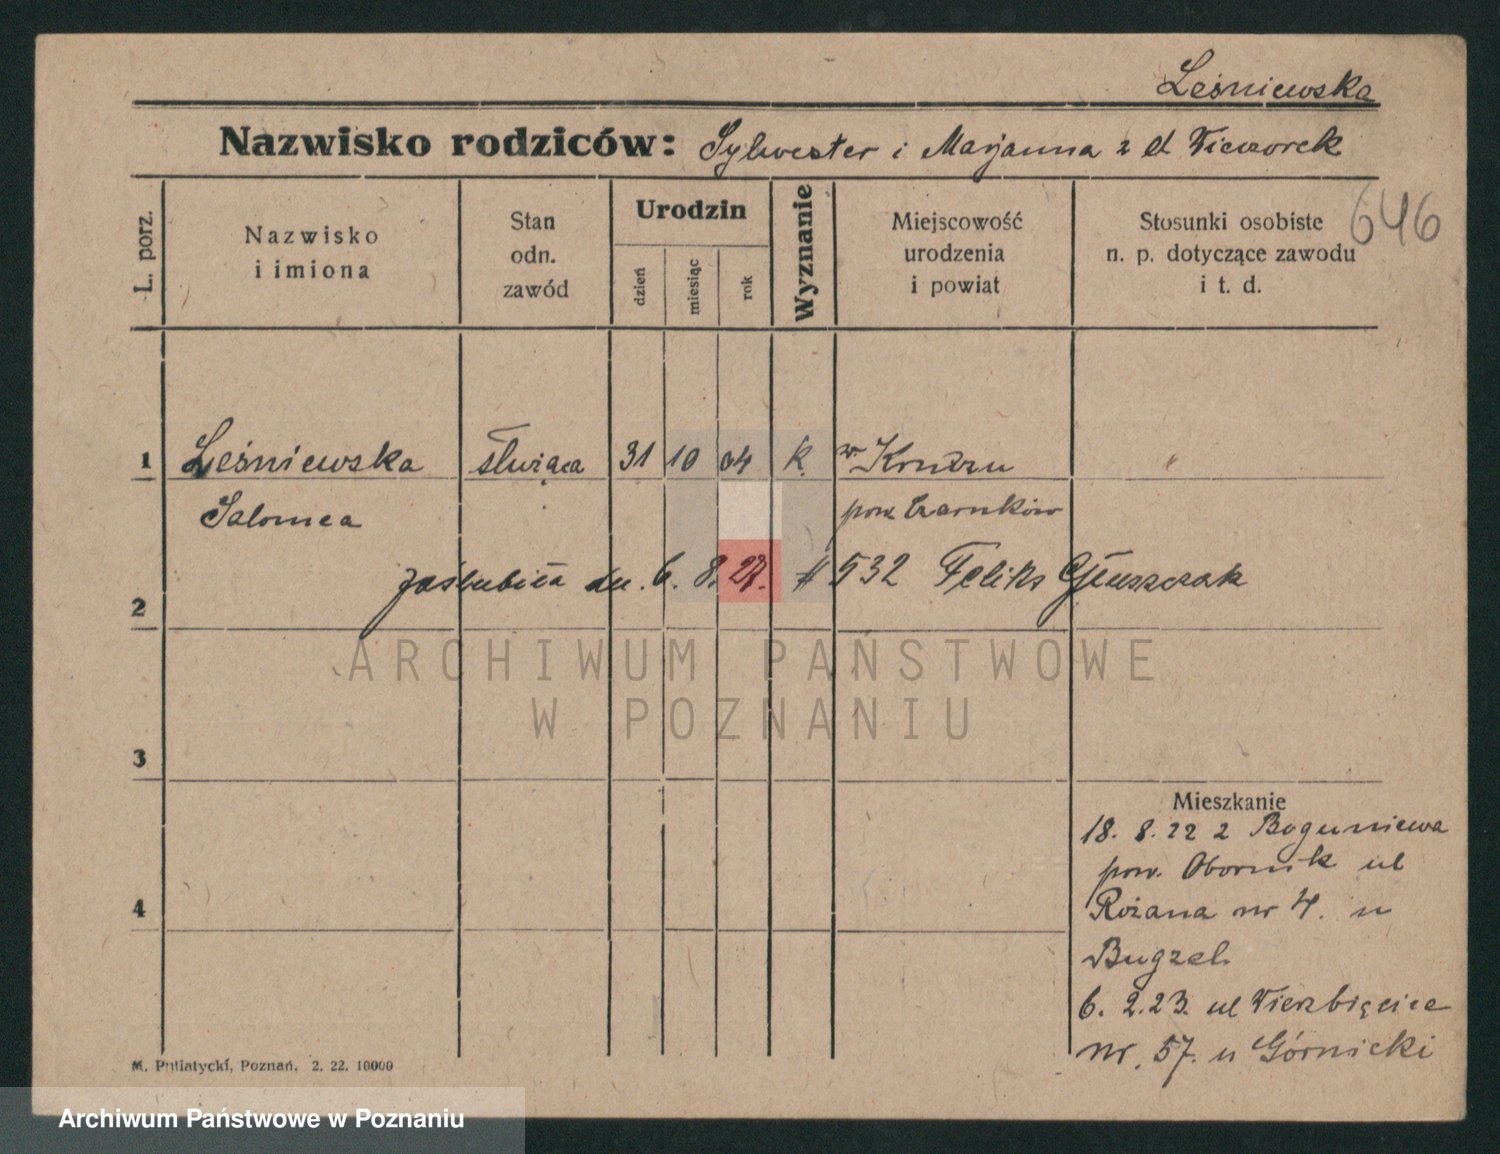 Leśniewska
Nazwisko rodziców: Sylwester i Marjanna z d Wieczorek
646
L. porz.
Nazwisko
i imiona
Stan
odn.
zawód
Urodzin
dzień
miesiąc
rok
Wyznanie
Miejscowość
urodzenia
i powiat
Stosunki osobiste
n. p. dotyczące zawodu
i t. d.
1 Leśniewska służąca 31 10 04 k. w
Salomea pow. Czarnków
zaślubiła dn. 6. 8. 27. # 532 Feliks
2
ARCHIWUM PAŃSTWOWE
W POZNANIU
3
Mieszkanie
18. 8. 22 z Boguniewa
pow. Obornik ul
4
Różana nr 4. u
6. 2. 23. ul Wierzbięcice
nr. 57. u Górnicki
M. Putiatycki, Poznań, 2. 22. 10000
Archiwum Państwowe w Poznaniu